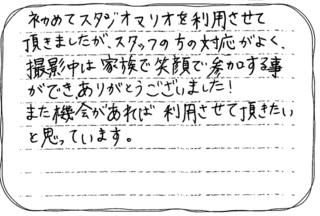 初めてスタジオマリオを利用させて
頂きましたが、スタッフの方の対応がよく、
撮影中は家族で笑顔で参加する事
ができありがとうございました!
また機会があれば利用させて頂きたい
と思っています。